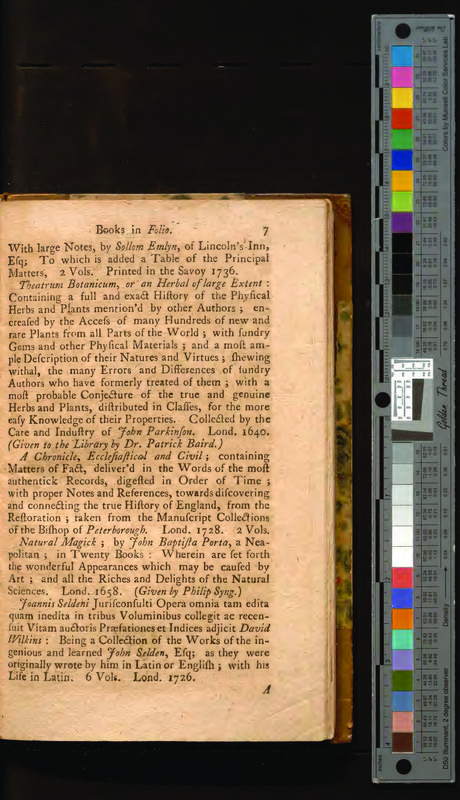 Books in Folio. 7
With large Notes, by Sollom Emlyn, of Lincoln's-Inn,
Eſq; To which is added a Table of the Principal
Matters, 2 Vols. Printed in the Savoy 1736.
Theatrum Botanicum, or an Herbal of large Extent :
Containing a full and exact Hiſtory of the Phyſical
Herbs and Plants mention'd by other Authors ; en-
creaſed by the Acceſs of many Hundreds of new and
rare Plants from all Parts of the World ; with ſundry
Gems and other Phyſical Materials ; and a moſt am-
ple Deſcription of their Natures and Virtues ; ſhewing
withal, the many Errors and Differences of ſundry
Authors who have formerly treated of them ; with a
moſt probable Conjecture of the true and genuine
Herbs and Plants, diſtributed in Claſſes, for the more
eaſy Knowledge of their Properties. Collected by the
Care and Induſtry of John Parkinſon. Lond. 1640.
(Given to the Library by Dr. Patrick Baird.)
A Chronicle, Eccleſiaſtical and Civil ; containing
Matters of Fact, deliver'd in the Words of the moſt
authentick Records, digeſted in Order of Time ;
with proper Notes and References, towards diſcovering
and connecting the true Hiſtory of England, from the
Reſtoration ; taken from the Manuſcript Collections
of the Biſhop of Peterborough. Lond. 1728. 2 Vols.
Natural Magick ; by John Baptiſta Porta, a Nea-
politan ; in Twenty Books : Wherein are ſet forth
the wonderful Appearances which may be cauſed by
Art ; and all the Riches and Delights of the Natural
Sciences. Lond. 1658. (Given by Philip Syng.)
Joannis Seldeni Juriſconſulti Opera omnia tam edita
quam inedita in tribus Voluminibus collegit ac recen-
ſuit Vitam auctoris Præfationes et Indices adjicit David
Wilkins : Being a Collection of the Works of the in-
genious and learned John Selden, Eſq; as they were
originally wrote by him in Latin or Engliſh ; with his
Life in Latin. 6 Vols. Lond. 1726.
A
Colors by Munsell Color Services Lab
Golden Thread
Density
D50 Illuminant, 2 degree observer